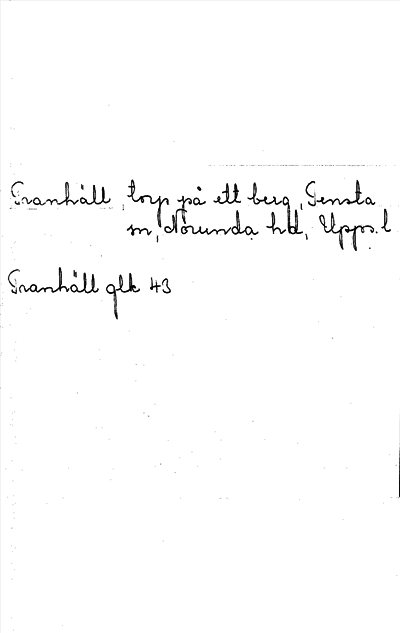 Tranhäll, torp på ett berg, Tensta
sn, Norunda hd, Upps. l
Tranhäll glk 43